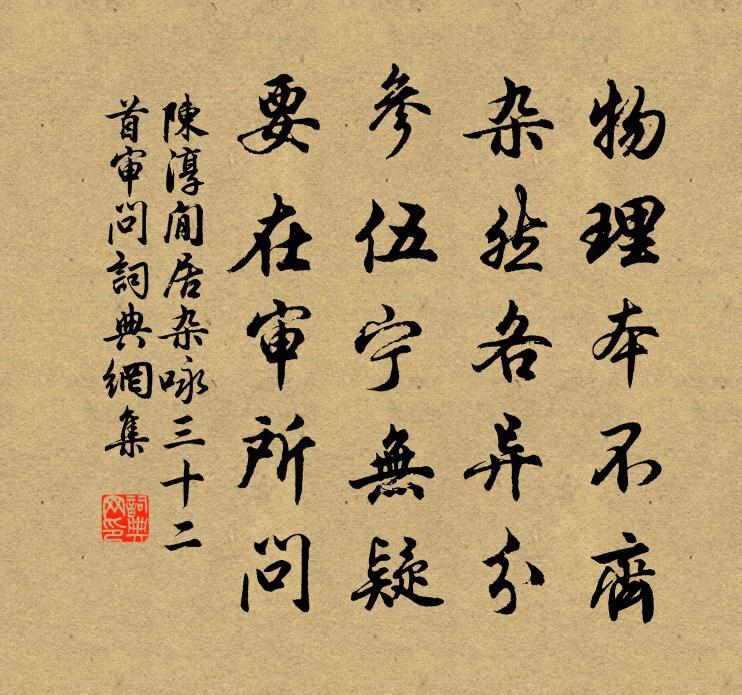 物理本不齊
杂然各异分
參伍宁無疑
要在审所問
陳淳閒居杂咏三十二
首审問詞典網集
詞典
网印